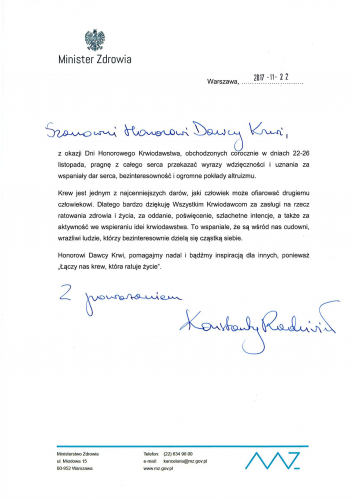 Minister Zdrowia
Warszawa, 2017 -11- 22
Szanowni Honorowi Dawcy Krwi,
z okazji Dni Honorowego Krwiodawstwa, obchodzonych corocznie w dniach 22-26
listopada, pragnę z całego serca przekazać wyrazy wdzięczności i uznania za
wspaniały dar serca, bezinteresowność i ogromne pokłady altruizmu.
Krew jest jednym z najcenniejszych darów, jaki człowiek może ofiarować drugiemu
człowiekowi. Dlatego bardzo dziękuję Wszystkim Krwiodawcom za zasługi na rzecz
ratowania zdrowia i życia, za oddanie, poświęcenie, szlachetne intencje, a także za
aktywność we wspieraniu idei krwiodawstwa. To wspaniałe, że są wśród nas cudowni,
wrażliwi ludzie, którzy bezinteresownie dzielą się cząstką siebie.
Honorowi Dawcy Krwi, pomagajmy nadal i bądźmy inspiracją dla innych, ponieważ
„Łączy nas krew, która ratuje życie”.
Z poważaniem
Konstanty Radziwiłł
Ministerstwo Zdrowia
ul. Miodowa 15
00-952 Warszawa
Telefon: (22) 634 96 00
e-mail: kancelaria@mz.gov.pl
www.mz.gov.pl
MZ